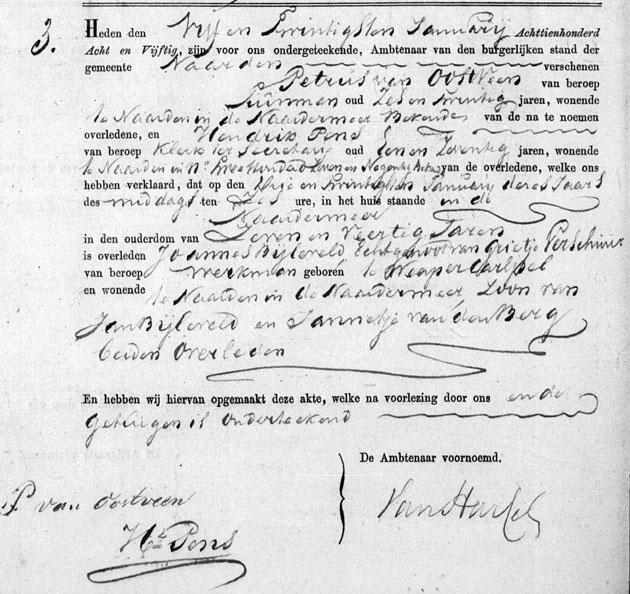 3. Heden den Vijf en Twintigsten Januarij Achttienhonderd
Acht en Vijftig, zijn voor ons ondergeteekende, Ambtenaar van den burgerlijken stand der
gemeente Naarden verschenen
Petrus van Oostveen van beroep
Tuinman oud Zes en Twintig jaren, wonende
te Naarden in de Naardermeer Bekende van de na te noemen
overledene, en Hendrik Pons van beroep Klerk ter Secretarie oud Een en Zeventig jaren, wonende
te Naarden in No. Twee Honderd Zeven en Negentig van de overledene, welke ons
hebben verklaard, dat op den Drie en Twintigsten Januarij dezes Jaars
des middags ten Zes ure, in het huis staande in de
Naardermeer
in den ouderdom van Zeven en Veertig Jaren
is overleden Joannes Bijleveld Echtgenoot van Grietje Verschuur
van beroep Werkman geboren te Weesper Carspel
en wonende te Naarden in de Naardermeer Zoon van
Jan Bijleveld en Jannetje van den Berg
beiden Overleden
En hebben wij hiervan opgemaakt deze akte, welke na voorlezing door ons en de
getuigen is Onderteekend
De Ambtenaar voornoemd.
P van Oostveen
H. Pons